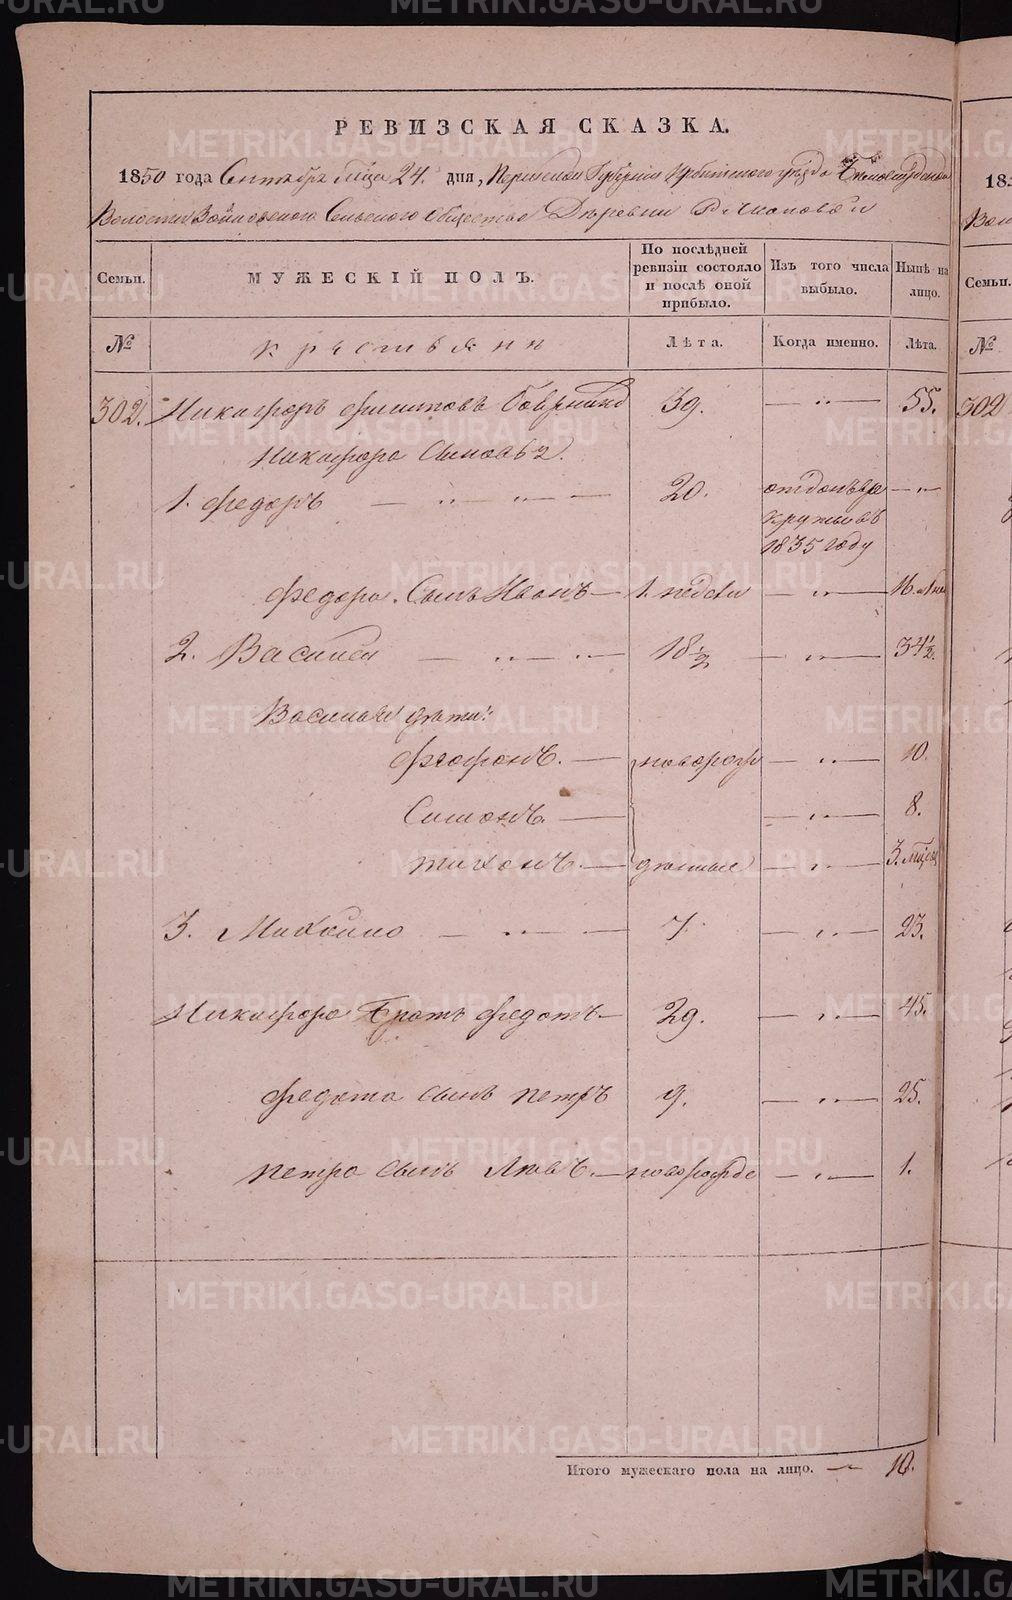 РЕВИЗСКАЯ СКАЗКА.
1850 года Сентября М҃ца 24. дня, Пермской Губернiи Ирбитского уѣзда Белослудской
Волости Сельского Общества Деревни
Семьи. МУЖЕСКIЙ ПОЛЪ. По послѣдней ревизiи состояло и послѣ оной прибыло. Изъ того числа выбыло. Нынѣ на лицо.
№ крестьяне Лѣта. Когда именно. Лѣта.
302. Никифоръ Филиповъ 39. — „ — 55.
Никифора Сыновья
1. Федоръ — „ — „ — 20. отданъ в рекруты въ 1835 году — „
Федора Сынъ Иванъ — 1. недели — „ — 16. лѣтъ
2. Василей — „ — „ — 18 1/2 — „ — 34 1/2.
Василья дѣти:
Феофанъ. — новорож — „ — 10.
Симонъ. — — „ — 8.
Тихонъ. — денные — „ — 3. м҃цов
3. Михайло — „ — 7. — „ — 23.
Никифора братъ Федотъ — 29. — „ — 45.
Федота сынъ Петръ 9. — „ — 25.
Петра сынъ — новорожде — „ — 1.
Итого мужескаго пола на лицо. — 10.
185
Вол
Семьи.
№
302
METRIKI.GASO-URAL.RU